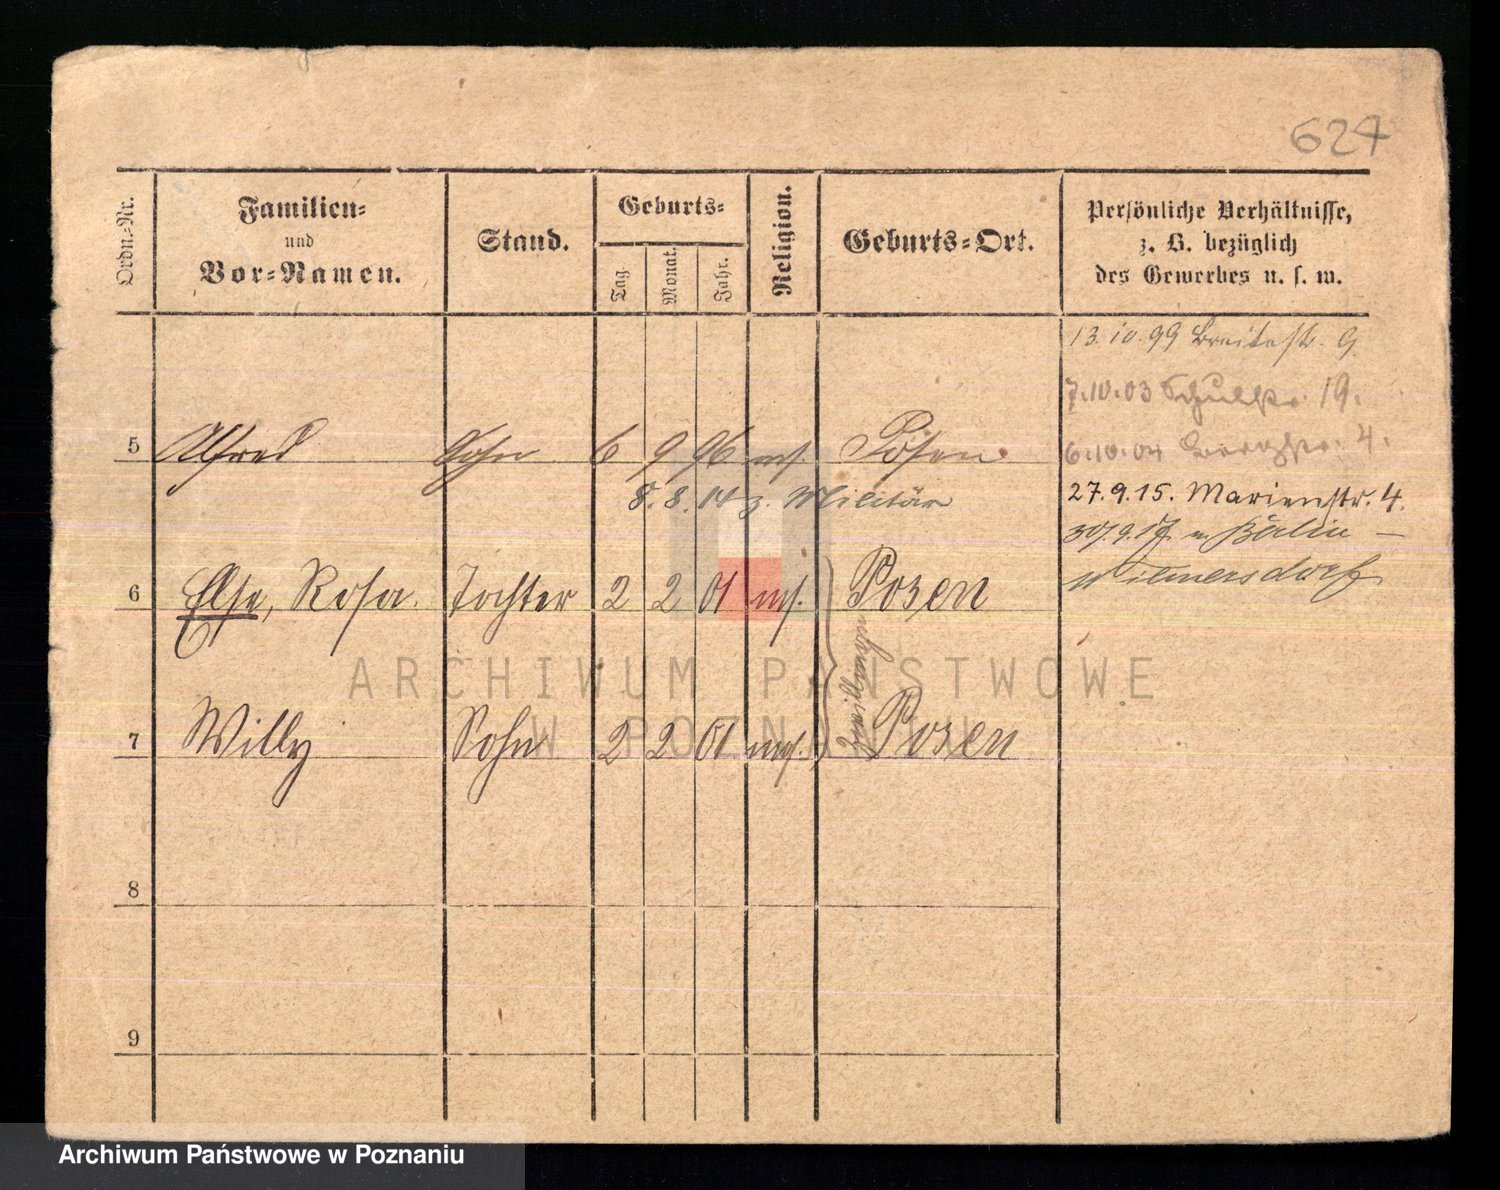 624
Ordn.-Nr.
Familien-
und
Vor-Namen.
Stand.
Geburts-
Tag.
Monat.
Jahr.
Religion.
Geburts-Ort.
Persönliche Verhältnisse,
z. B. bezüglich
des Gewerbes u. s. w.
13.10.99 Breitestr. 9
7.10.03 Schulstr. 19.
6.10.04 Bergstr. 4.
5 Alfred Sohn 6 9 96 mos. Posen
27.9.15. Marienstr. 4.
5.8.14 z. Militär
30/9.17. n. Berlin –
Wilmersdorf
6 Else, Rosa. Tochter 2 2 01 mos. Posen
Zwillinge
7 Willy Sohn 2 2 01 mos. Posen
8
9
ARCHIWUM PAŃSTWOWE
W POZNANIU
Archiwum Państwowe w Poznaniu